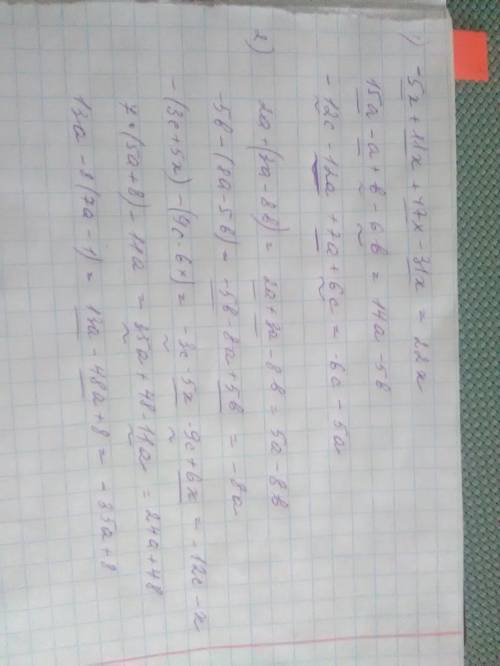 1) -5x + 11x + 47x - 31x = 22x
15a - a + b - 6b = 14a - 5b
- 12c - 12a + 7a + 6c = -6c - 5a
2) 2a + (3a - 8b) = 2a + 3a - 8b = 5a - 8b
-5b - (8a - 5b) = -5b - 8a + 5b = -8a
-(3c + 5x) - (9c - 6x) = -3c - 5x - 9c + 6x = -12c - x
7 · (5a + 8) - 11a = 35a + 48 - 11a = 24a + 48
13a - 8(7a - 1) = 13a - 48a + 8 = - 35a + 8